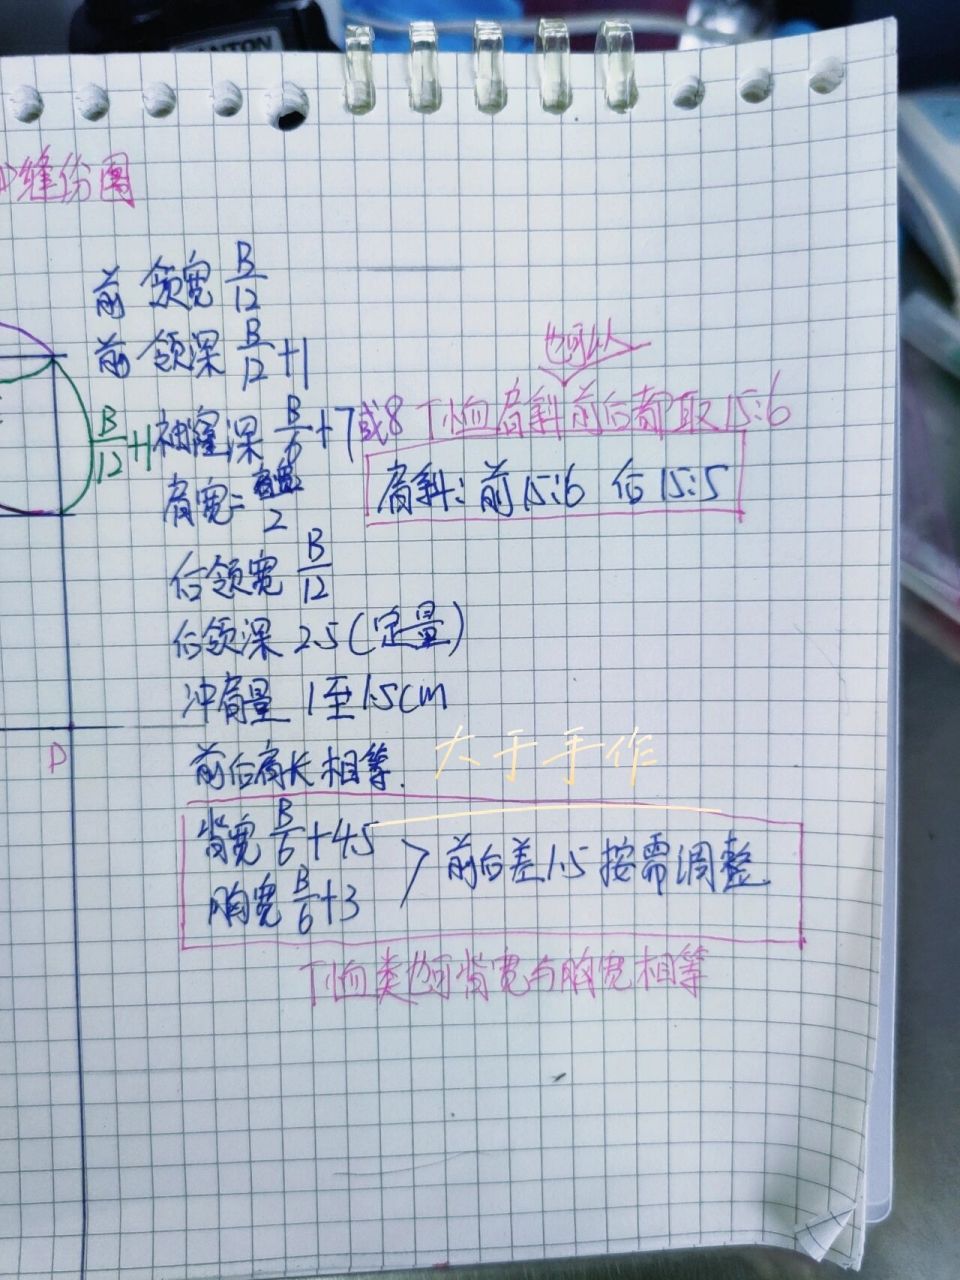 缝份图
前 领宽 B/12
前 领深 B/12+1
也可以
B/12+1
袖窿深 B/6+7或8
T恤肩斜前后都取15:6
肩宽=肩宽/2
肩斜: 前15:6 后15:5
后领宽 B/12
后领深 2.5(定量)
冲肩量 1至1.5cm
前后肩长相等.
大于手作
背宽 B/6+4.5
胸宽 B/6+3
前后差1.5 按需调整
T恤类也可背宽与胸宽相等